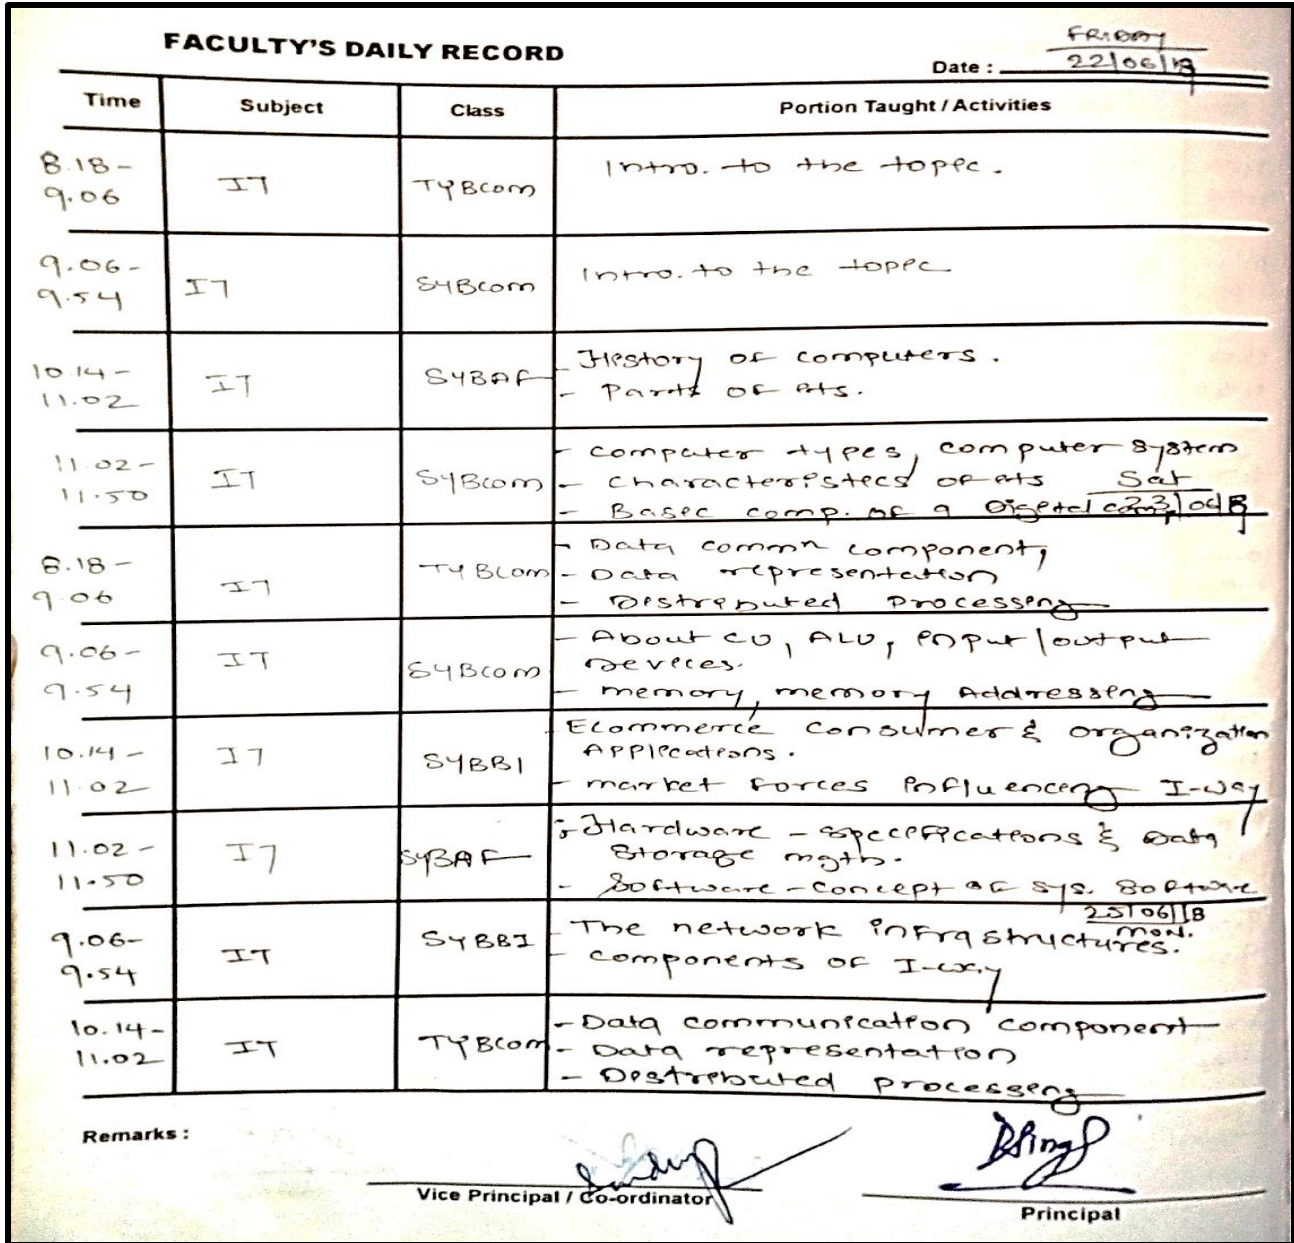 FACULTY'S DAILY RECORD
FRIDAY
Date : 22/06/18
Time Subject Class Portion Taught / Activities
8.18 - 9.06 IT TYBcom Intro. to the topic.
9.06- 9.54 IT SYBcom Intro. to the topic
10.14 - 11.02 IT SYBAF - History of computers.
- Parts of its.
11.02 - 11.50 IT SYBcom - Computer types, computer system
- Characteristics of its Sat
- Basic comp. of a Digital comp. 23/06/18
8.18 - 9.06 IT TYBcom - Data commn component,
- Data representation
- Distributed processing
9.06- 9.54 IT SYBcom - About CU, ALU, input/output
devices.
- memory, memory Addressing
10.14 - 11.02 IT SYBBI Ecommerce consumer & organization
Applications.
- market forces influencing I-way
11.02 - 11.50 IT SYBAF - Hardware - specifications & Data
storage mgth.
- Software - Concept of sys. software
25/06/18
9.06- 9.54 IT SYBBI - The network infrastructures. MON.
- components of I-way
10.14- 11.02 IT TYBcom - Data communication component
- Data representation
- Distributed processing
Remarks :
Vice Principal / Co-ordinator
Principal